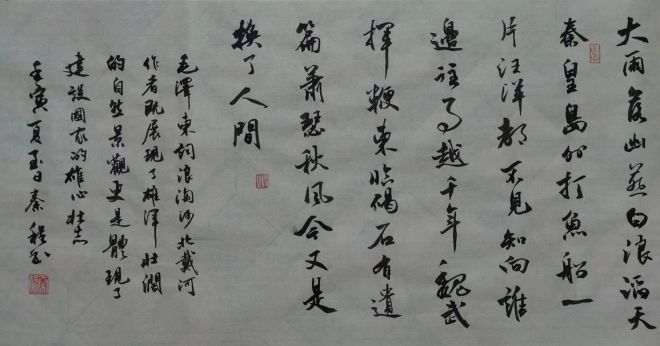 大雨落幽燕白浪滔天
秦皇島外打魚船一
片汪洋都不見知向誰
邊往事越千年魏武
揮鞭東臨碣石有遺
篇蕭瑟秋風今又是
換了人間
毛澤東詞浪淘沙北戴河
作者既展現了雄渾壯闊
的自然景觀更是體現了
建設國家的雄心壯志
壬寅夏至日秦